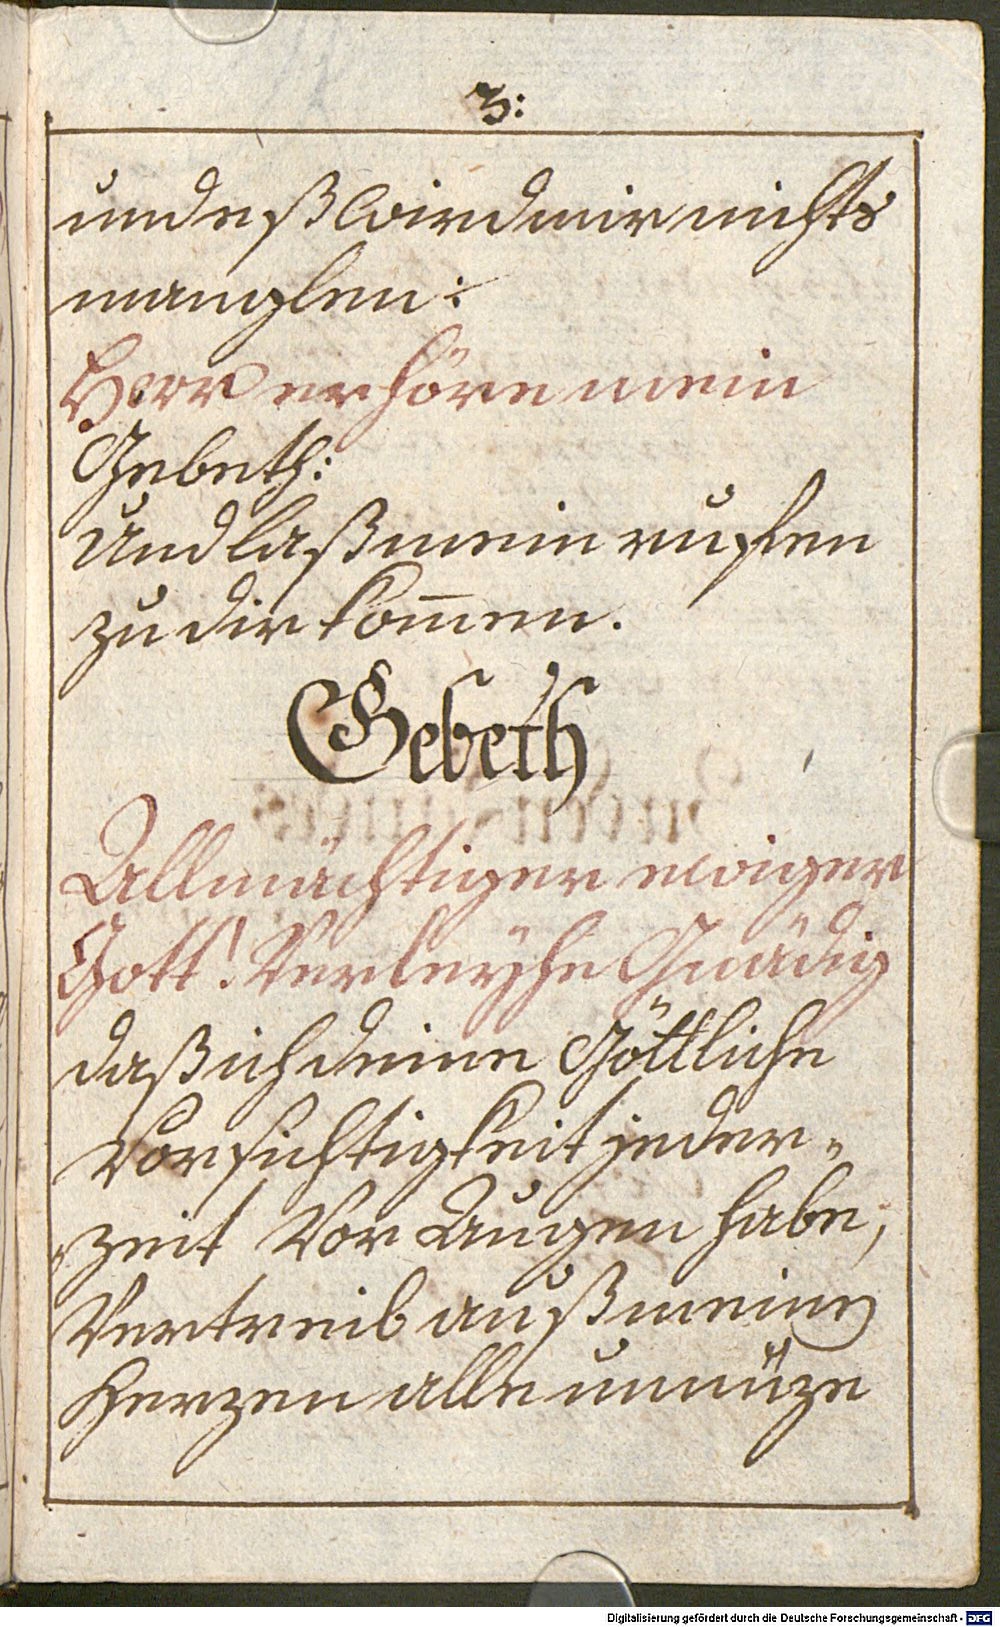 3:
und eß wird mir nichts
manglen:
Herr erhöre mein
Gebeth:
Und laß mein ruffen
zu dir kom̄en.
Gebeth
Allmächtiger ewiger
Gott! Verleyhe Gnädig
daß ich deine Göttliche
Vorsichtigkeit jeder„
„zeit Vor Augen habe,
Vertreib auß meinen
Herzen alle unnüze
Digitalisierung gefördert durch die Deutsche Forschungsgemeinschaft - DFG